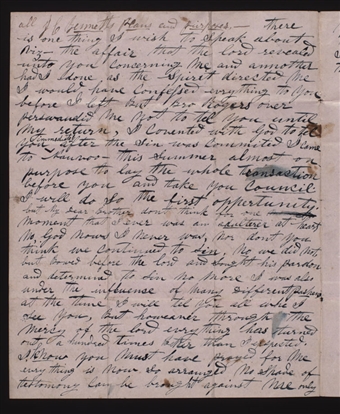 all of the plans and purposes — there
is one thing I wish to speak about
Viz — the affair that the lord revealed
unto you concerning me and annother
had I done as the Spirit directed Me
I would have Confessed everything to you
before I left But Bro Rogers over
perswaided Me not to tell you until
My return, I Covented with God to tell
you after the Sin was Commited I Came
to Nauvoo this Summer almost on
purpose to lay the whole transaction
before you and take you Council
I will do so the first oppertunity
but My dear brother dont think for one
Moment that I ever was an adulterer at heart
No, God Nows I Never was, Nor dont you
think we Continued to sin, No we did Not
but bowed before the lord and sought his pardon
and determined to sin no More I was also
under the influence of Many different
at the time I will tell you all when I
See you, But howeaver through the
Mercy of the lord every thing has turned
out a hundred times better than I expected.
I know you Must have prayed for Me
every thing is Now so arranged No shade of
testomony Can be brought against Me only